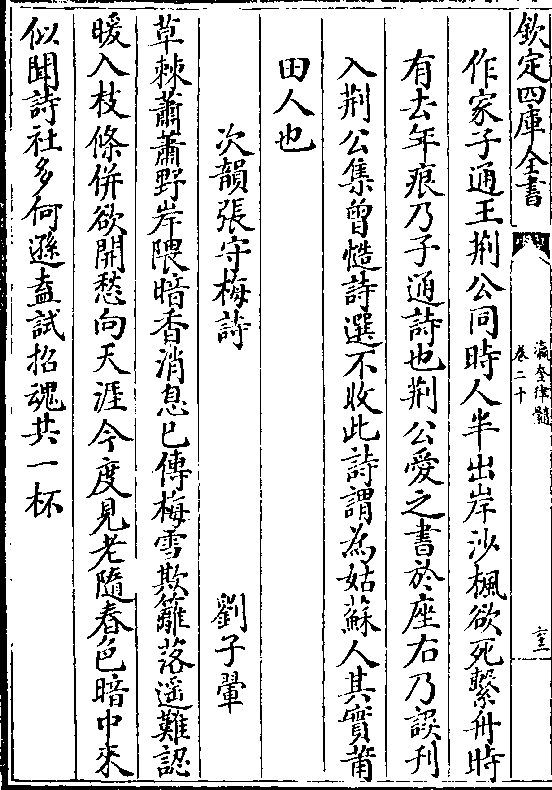 欽定四庫全書
瀛奎律髓
卷二十
作家子通王荆公同時人半出岸沙楓欲死繫舟時
有去年痕乃子通詩也荆公愛之書於座右乃誤刋
入荆公集曾慥詩選不收此詩謂為姑蘇人其實莆
田人也
次韻張守梅詩 劉子翬
草棘蕭蕭野岸隈暗香消息已傳梅雪欺籬落遥難認
暖入枝條併欲開愁向天涯今度見老隨春色暗中來
似聞詩社多何遜盍試招魂共一杯